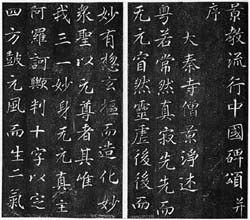 景教流行中國碑頌并
序
大秦寺僧景淨述
粵若常然真寂先先而
无元窅然靈虛後後而
妙有惣玄樞而造化妙
衆聖以元尊者其唯
我三一妙身无元真主
阿羅訶歟判十字以定
四方鼓元風而生二氣